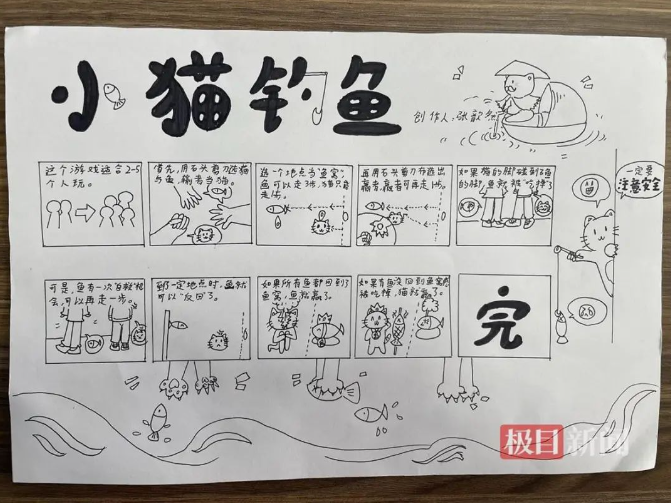 小猫钓鱼
创作人:张歆然
这个游戏适合2-5
个人玩。
首先,用石头剪刀选猫
与鱼,输者当猫。
选一个地点当“鱼窝”,
鱼可以走3步,猫只能
走1步。
再用石头剪刀布选出
赢者,赢者可再走1步。
如果猫的脚碰到了鱼
的脚,鱼就被“吃掉”了
一定要
注意安全
可是,鱼有一次“自救”机
会,可以再走一步。
到了一定地点时,鱼就
可以“反回”了。
如果所有鱼都回到了
鱼窝,鱼就赢了。
如果有鱼没回到鱼窝,被
猫吃掉,猫就赢了。
完
极目新闻